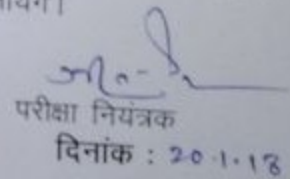 परीक्षा नियंत्रक
दिनांक : 20.1.18